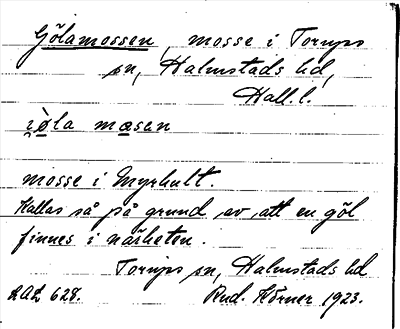 Gölamossen, mosse i Torups
sn, Halmstads hd,
Hall. l.
jøla mosen
mosse i Myrhult.
Kallas så på grund av att en göl
finnes i närheten.
Torups sn, Halmstads hd
LAL 628. Rud. Körner 1923.